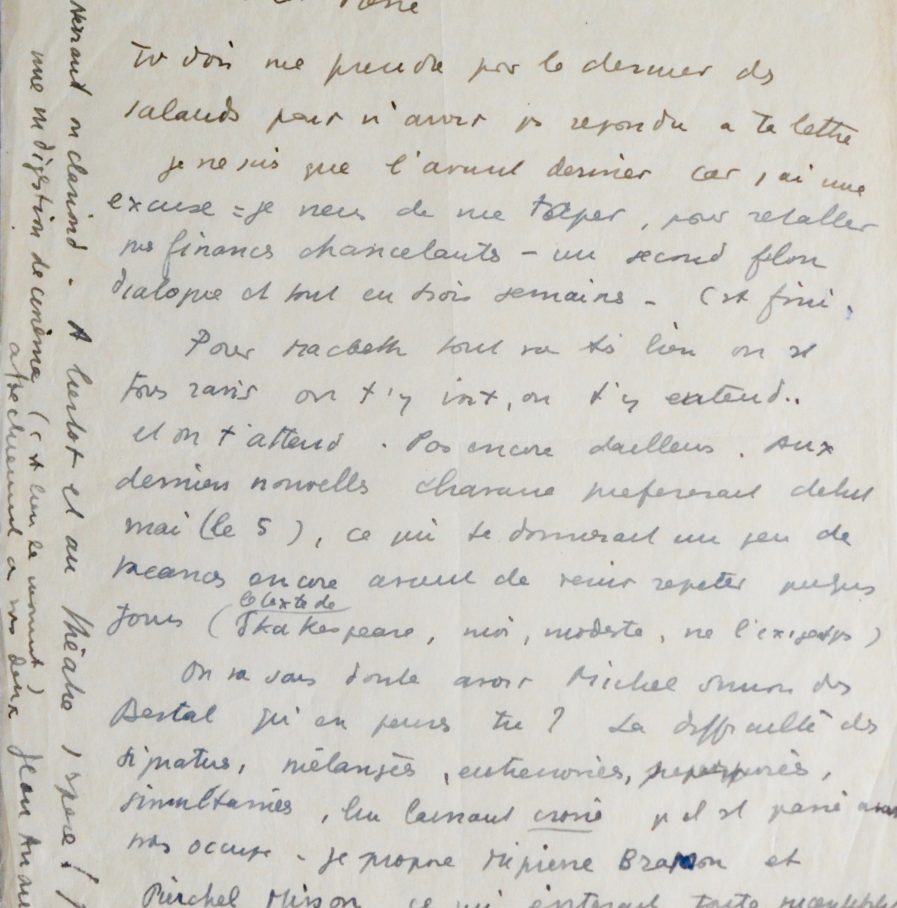 Tu dois me prendre pour le dernier des
salauds pour n'avoir ps repondu a ta lettre
je ne suis que l'avant dernier car j'ai une
excuse = je viens de me taper, pour retaller
nos finances chancelants - un second film
dialogue et tout en trois semaines - C'est fini.
Pour Macbeth tout va très bien on est
tous ravis on t'y voit, on t'y entend..
et on t'attend. Pas encore dailleurs. Aux
dernieres nouvelles chavane prefererait debut
mai (le 5), ce qui te donnerait un peu de
vacances encore avant de venir repeter quelques
jours (le texte de Shakespeare, moi, modeste, ne l'exigeait ps)
On va sans doute avoir Michel Simon des
Bertal qu'en penses tu ? La difficulté des
signatures, mélangées, entrecroisées,
simultanées, lui laissant croire qu'il est passé avant
nous occupe - je propose Mipierre et
Pierchel Misson, ce qui toute
A bientot et au théatre j'espere !
une indigestion de cinéma (c'est bien le moment)
affectueusement a vos deux Jean